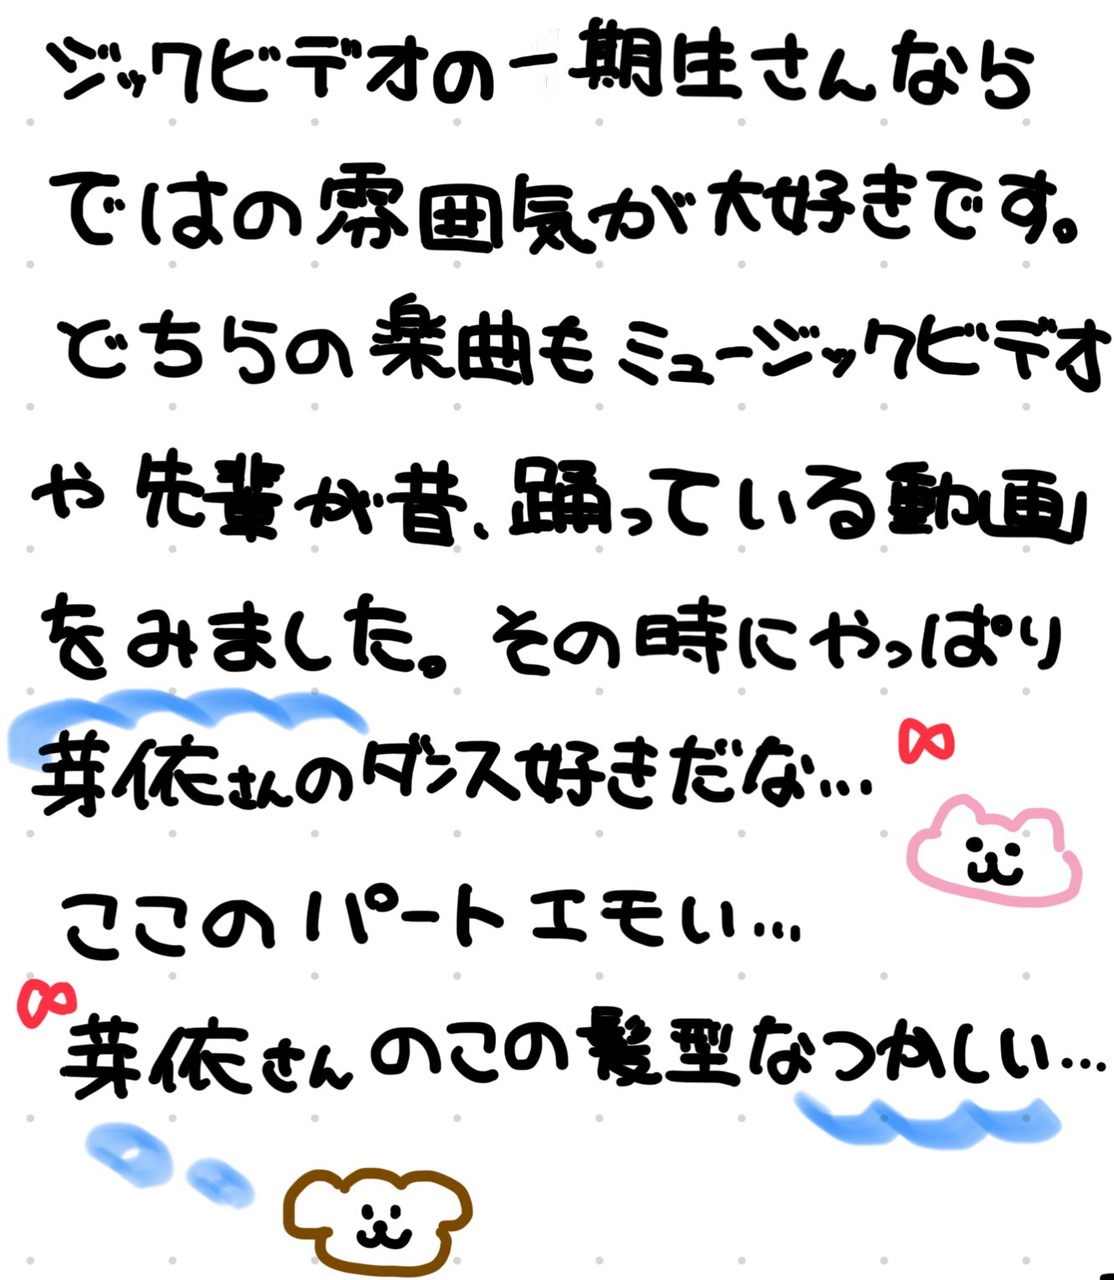 ジックビデオの一期生さんなら
ではの雰囲気が大好きです。
どちらの楽曲もミュージックビデオ
や先輩が昔、踊っている動画
をみました。その時にやっぱり
芽依さんのダンス好きだな…
ここのパートエモい…
芽依さんのこの髪型なつかしい…